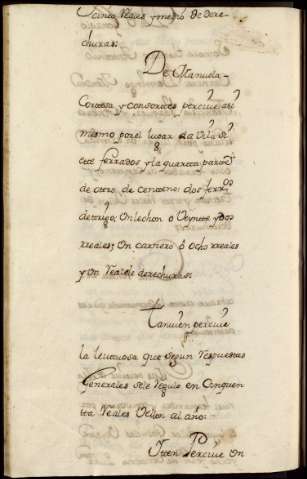 cinco reales y medio de dere-
churas:
De Manuela
Cortesa y consortes percive asi
mismo por el lugar da Vila
ete ferrados y la quarta
de otro de centeno: dos ferrdos
de trigo; Un lechon ô Veynte y dos
reales; Un carnero ô ocho rreales
y Un real de derechuras:
Tanvien percive
la levtuosa que segun respuestas
Generales se le reguló en Cinquen
tta reales Vellon al año:
Yten Percive Un